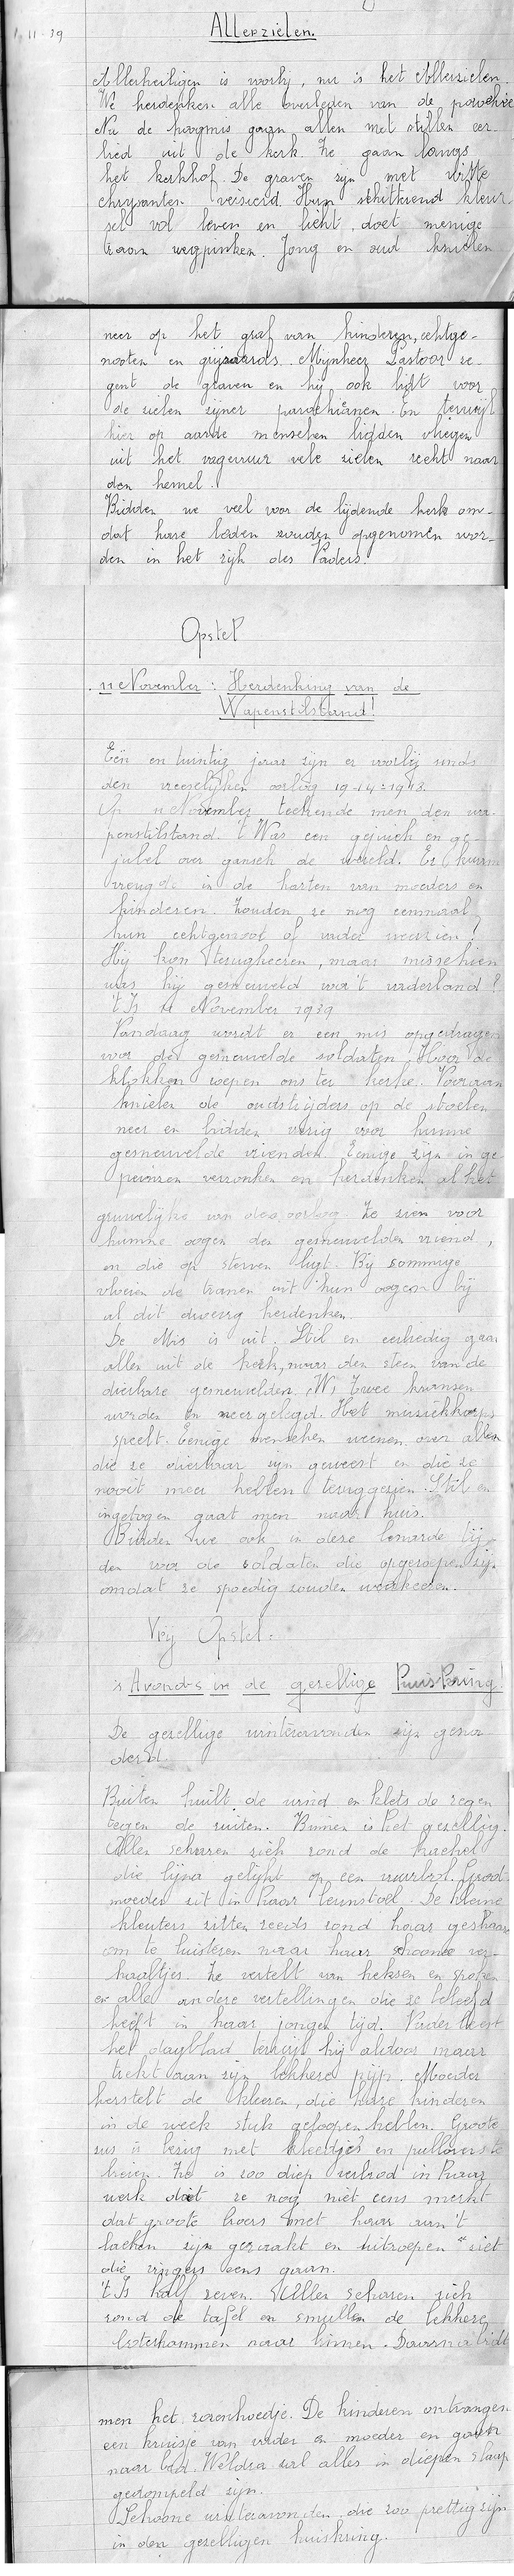 11-39
Allerzielen.
Allerheiligen is voorbij, nu is het Allerzielen.
We herdenken alle overleden van de parochie
Na de hoogmis gaan allen met stillen eer-
bied uit de kerk. Ze gaan langs
het kerkhof. De graven zijn met witte
chrysanten versierd. Hun schitterend kleur-
sel vol leven en licht, doet menige
traan wegpinken. Jong en oud knielen
neer op het graf van kinderen, echtge-
nooten en grijsaards. Mijnheer Pastoor ze-
gent de graven en hij ook bidt voor
de zielen zijner parochianen. En terwijl
hier op aarde menschen bidden vliegen
uit het vagevuur vele zielen recht naar
den hemel.
Bidden we veel voor de lijdende kerk om-
dat hare leden zouden opgenomen wor-
den in het rijk des Vaders.
Opstel
11 November: Herdenking van de
Wapenstilstand!
Eén en twintig jaar zijn er voorbij sinds
den vreeselijken oorlog 1914-1918.
Op 11 November teekende men den wa-
penstilstand. 't Was een gejuich en ge-
jubel over gansch de wereld. Er kwam
vreugde in de harten van moeders en
kinderen. Zouden ze nog eenmaal
hun echtgenoot of vader weerzien?
Hij kon terugkeeren, maar misschien
was hij gesneuveld voor 't vaderland!
't Is 11 November 1939
Vandaag wordt er een mis opgedragen
voor de gesneuvelde soldaten. Hoor de
klokken roepen ons ter kerke. Vooraan
knielen de oudstrijders op de stoelen
neer en bidden vurig voor hunne
gesneuvelde vrienden. Eenige zijn in ge-
peinzen verzonken en herdenken al het
gruwelijke van deze oorlog. Ze zien voor
hunne oogen den gesneuvelden vriend,
en die op sterven ligt. Bij sommige
vloeien de tranen uit hun oogen bij
al dit droevig herdenken.
De Mis is uit. Stil en eerbiedig gaan
allen uit de kerk, naar den steen van de
dierbare gesneuvelden. Twee kransen
worden er neergelegd. Het muziekkorps
speelt. Eenige menschen weenen over allen
die ze dierbaar zijn geweest en die ze
nooit meer hebben teruggezien. Stil en
ingetogen gaat men naar huis.
Bidden we ook in deze benarde tij-
den voor de soldaten die opgeroepen zijn
omdat ze spoedig zouden weerkeeren.
Vrij Opstel:
's Avonds in de gezellige huiskring!
De gezellige winteravonden zijn gena-
derd.
Buiten huilt de wind en klets de regen
tegen de ruiten. Binnen is het gezellig.
Allen scharen zich rond de kachel
die bijna gelijkt op een vuurbol. Groot-
moeder zit in haar leunstoel. De kleine
kleuters zitten reeds rond haar geschaar
om te luisteren naar haar schoone ver-
haaltjes. Ze vertelt van heksen en spoken
en alle andere vertellingen die ze beleefd
heeft in haar jongen tijd. Vader leest
het dagblad terwijl hij aldoor maar
trekt aan zijn lekkere pijp. Moeder
herstelt de kleeren, die hare kinderen
in de week stuk geloopen hebben. Groote
zus is bezig met kleedjes en pullovers te
breien. Ze is zoo diep verload in haar
werk dat ze nog niet eens merkt
dat groote broers met haar aan 't
lachen zijn geraakt en uitroepen "ziet
die vingers eens gaan.
't Is half zeven. Allen scharen zich
rond de tafel en smullen de lekkere
boterhammen naar binnen. Daarna bidt
men het rozenhoedje. De kinderen ontvangen
een kruisje van vader en moeder en gaan
naar bed. Weldra zal alles in diepen slaap
gedompeld zijn.
Schoone winteravonden die zoo prettig zijn
in den gezelligen huiskring.